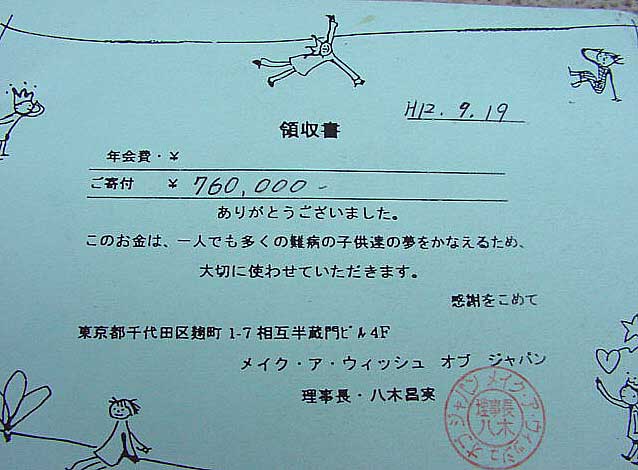 H12.9.19
領収書
年会費・¥
ご寄付 ¥ 760,000-
ありがとうございました。
このお金は、一人でも多くの難病の子供達の夢をかなえるため、
大切に使わせていただきます。
感謝をこめて
東京都千代田区麹町 1-7 相互半蔵門ビル4F
メイク・ア・ウィッシュ オブ ジャパン
理事長・八木昌実
メイク・ア・ウィッシュ オブ ジャパン
理事長
八木